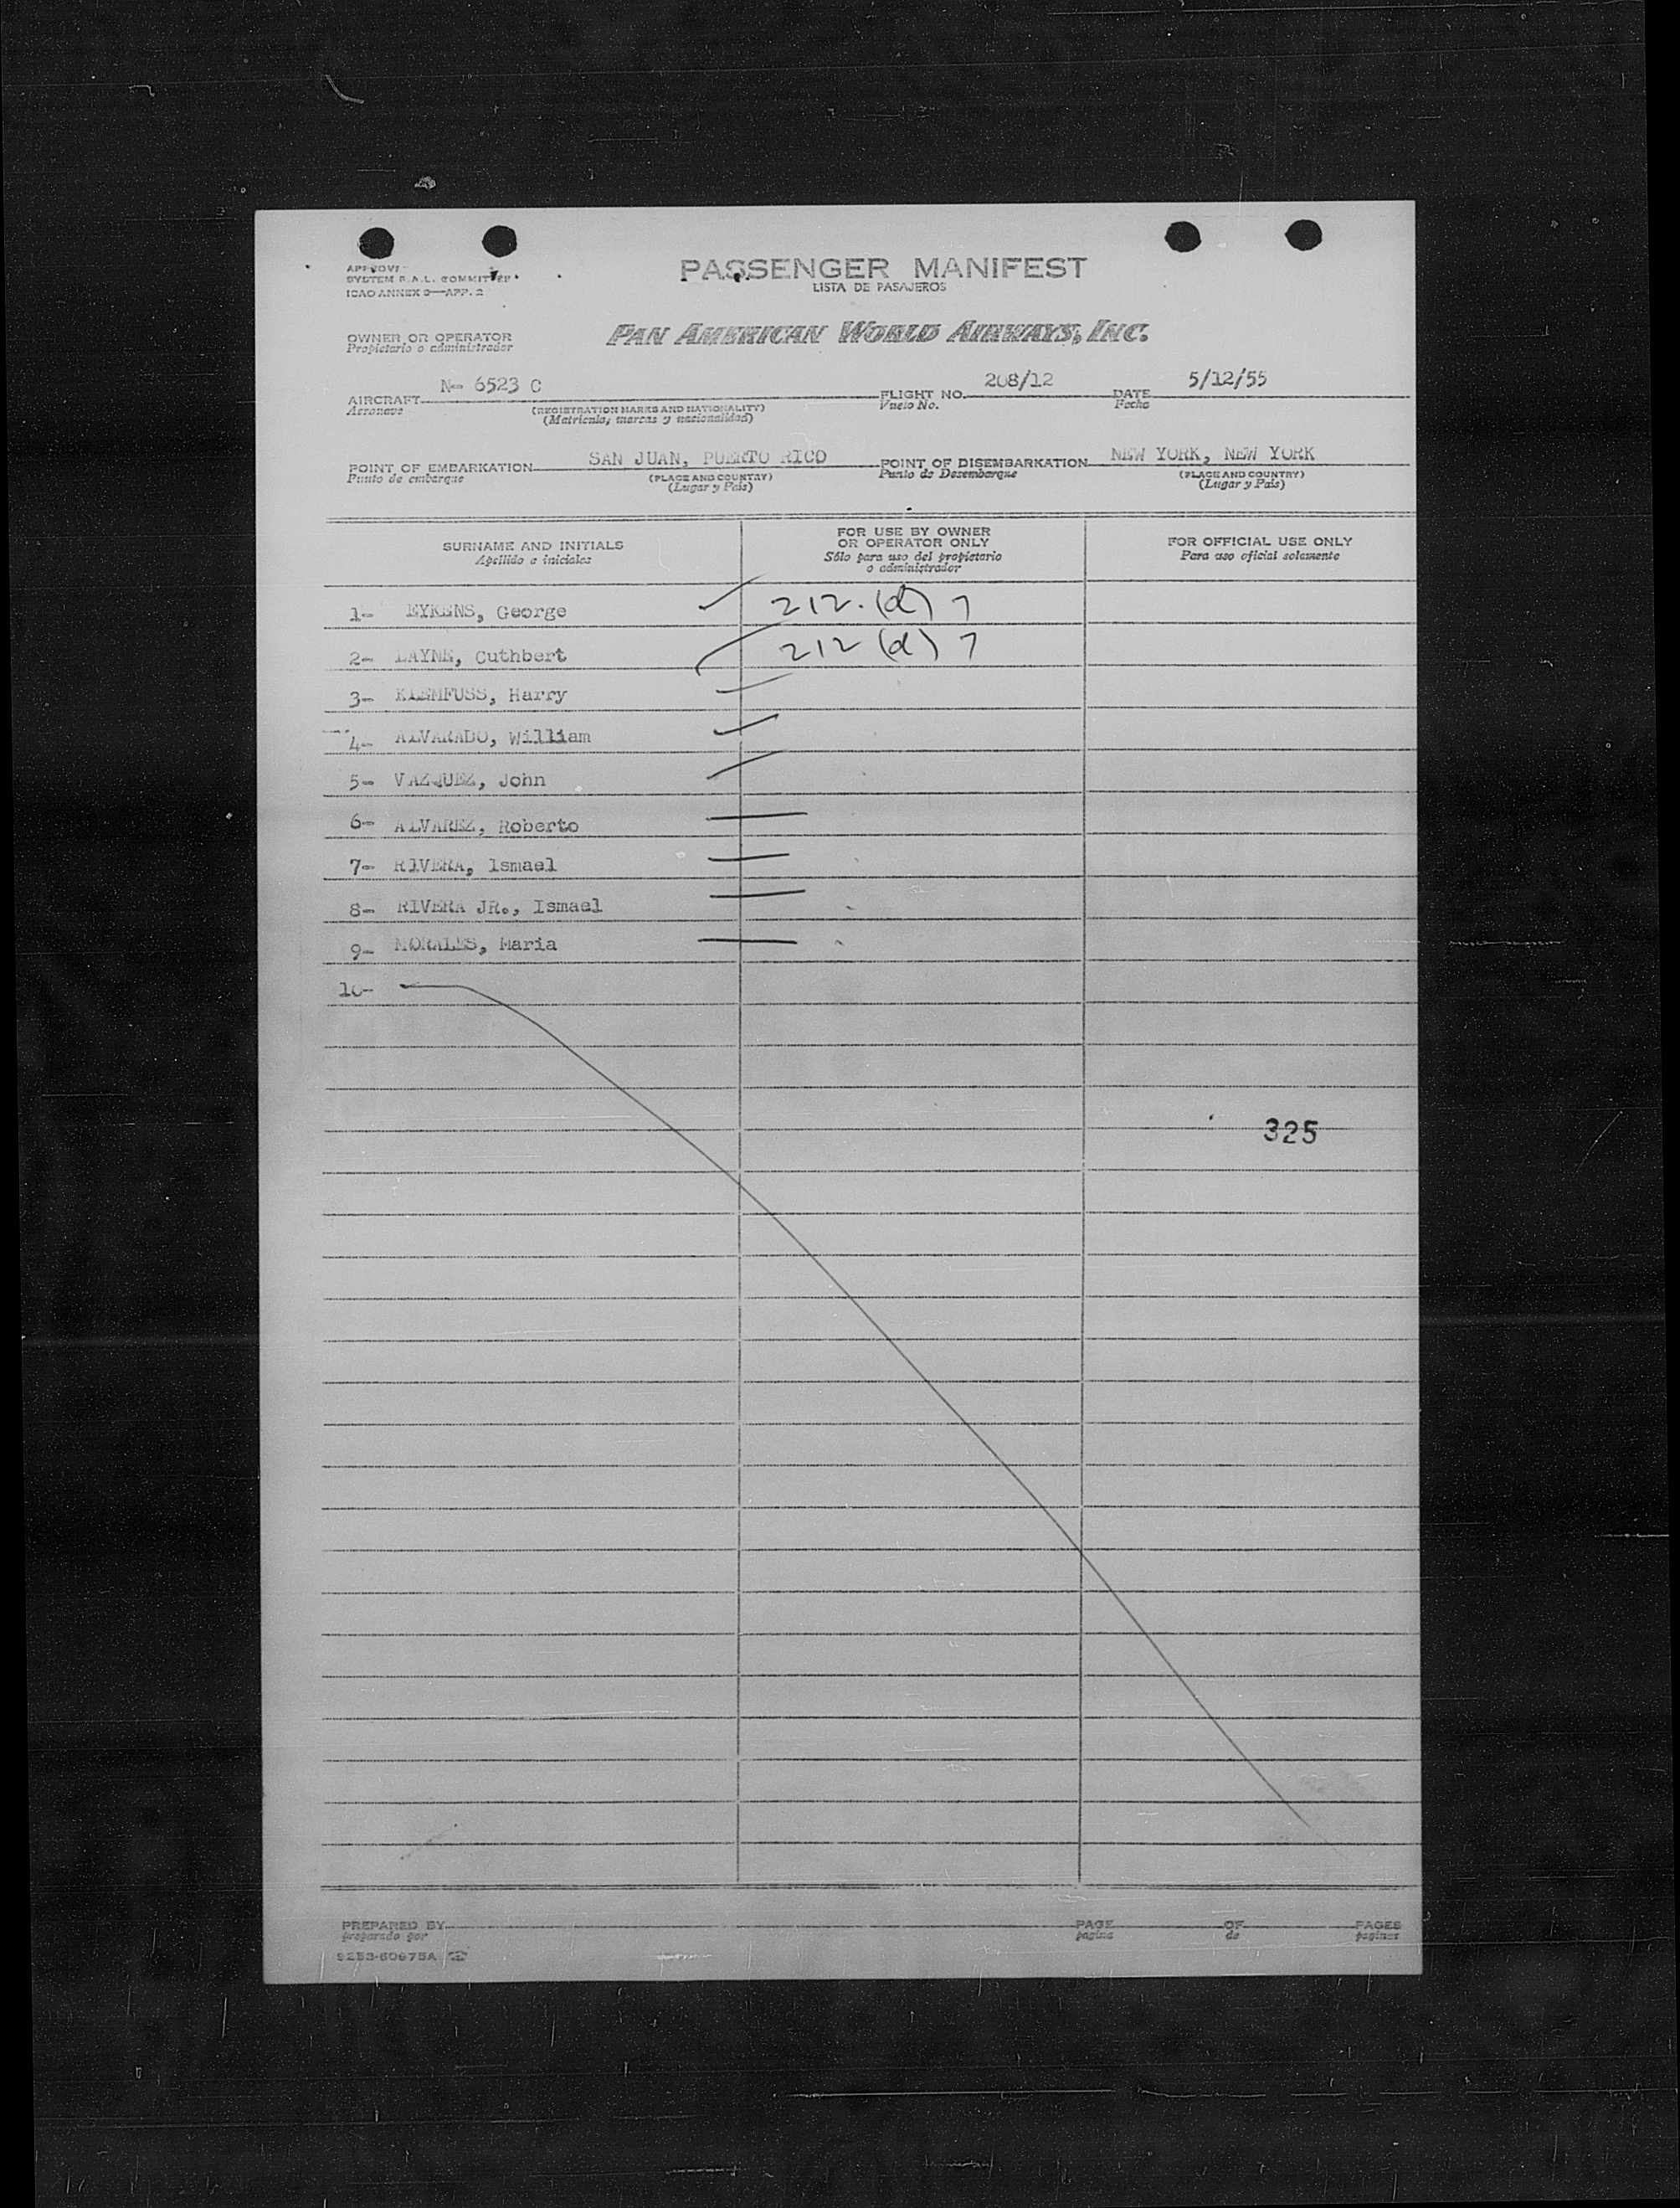 APPROVED
SYSTEM F.A.L. COMMITTEE
ICAO ANNEX 9—APP. 2
PASSENGER MANIFEST
LISTA DE PASAJEROS
OWNER OR OPERATOR
Propietario o administrador
PAN AMERICAN WORLD AIRWAYS, INC.
AIRCRAFT N- 6523 C FLIGHT NO. 208/12 DATE 5/12/55
Aeronave (REGISTRATION MARKS AND NATIONALITY) Vuelo No. Fecha
(Matrícula, marcas y nacionalidad)
POINT OF EMBARKATION SAN JUAN, PUERTO RICO POINT OF DISEMBARKATION NEW YORK, NEW YORK
Punto de embarque (PLACE AND COUNTRY) Punto de Desembarque (PLACE AND COUNTRY)
(Lugar y País) (Lugar y País)
SURNAME AND INITIALS
Apellido e iniciales
FOR USE BY OWNER
OR OPERATOR ONLY
Sólo para uso del propietario
o administrador
FOR OFFICIAL USE ONLY
Para uso oficial solamente
1- EYKENS, George 212.(d) 7
2- LAYNE, Cuthbert 212 (d) 7
3- KLEMFUSS, Harry
4- ALVARADO, William
5- VAZQUEZ, John
6- ALVAREZ, Roberto
7- RIVERA, Ismael
8- RIVERA JR., Ismael
9- MORALES, Maria
10-
325
PREPARED BY PAGE OF PAGES
preparado por pagina de paginas